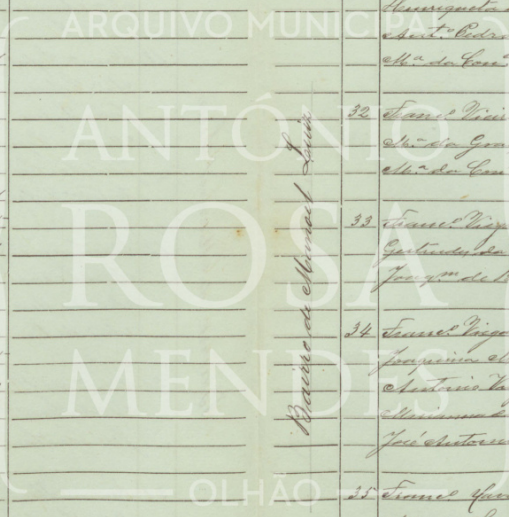 ARQUIVO MUNICIPAL
ANTÓNIO
ROSA
MENDES
OLHÃO
Bairro de Manoel Luiz
Henriqueta
Ant.º Pedro
M.ª da Con
32 Franc.º Vieir
M.ª da Gra
M.ª da Con
33 Franc.º
Gertrudes da
Joaq.m de
34 Franc.º Virgo
Joaquina
Antonio
Marianna d
José Antonio
35 Franc.º